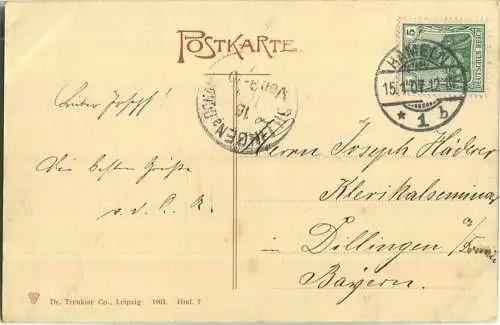 POSTKARTE
5
DEUTSCHES REICH
HAMELN
15.1.07. 12-
* 1 b
DILLINGEN a. DONAU
16
Lieber Joseph!
Die besten Grüße
v. d. C. R.
Herrn Joseph Häderer
Klerikalseminar
in Dillingen a/Donau
Bayern.
Dr. Trenkler Co., Leipzig. 1903. Hml. 7